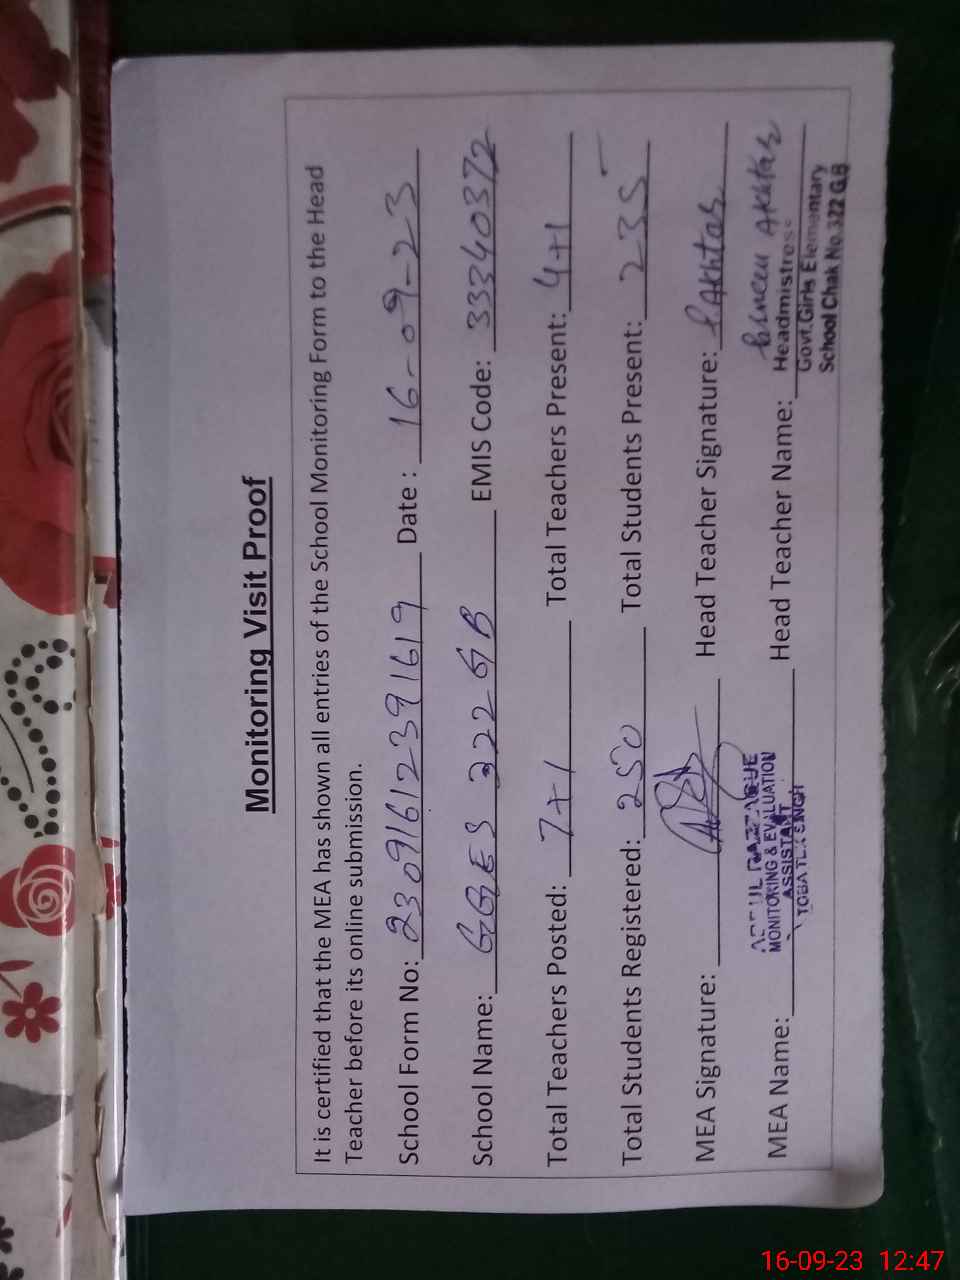 Monitoring Visit Proof
It is certified that the MEA has shown all entries of the School Monitoring Form to the Head
Teacher before its online submission.
School Form No: 23091612391619 Date : 16-09-23
School Name: GGES 322 GB EMIS Code: 33340372
Total Teachers Posted: 7+1 Total Teachers Present: 4+1
Total Students Registered: 250 Total Students Present: 235
MEA Signature: Head Teacher Signature: Akhtar
MEA Name: MONITORING & EVALUATION
ASSISTANT
Head Teacher Name: Akhtar
Headmistress
Govt.Girls Elementary
School Chak No.322 G.B
16-09-23 12:47